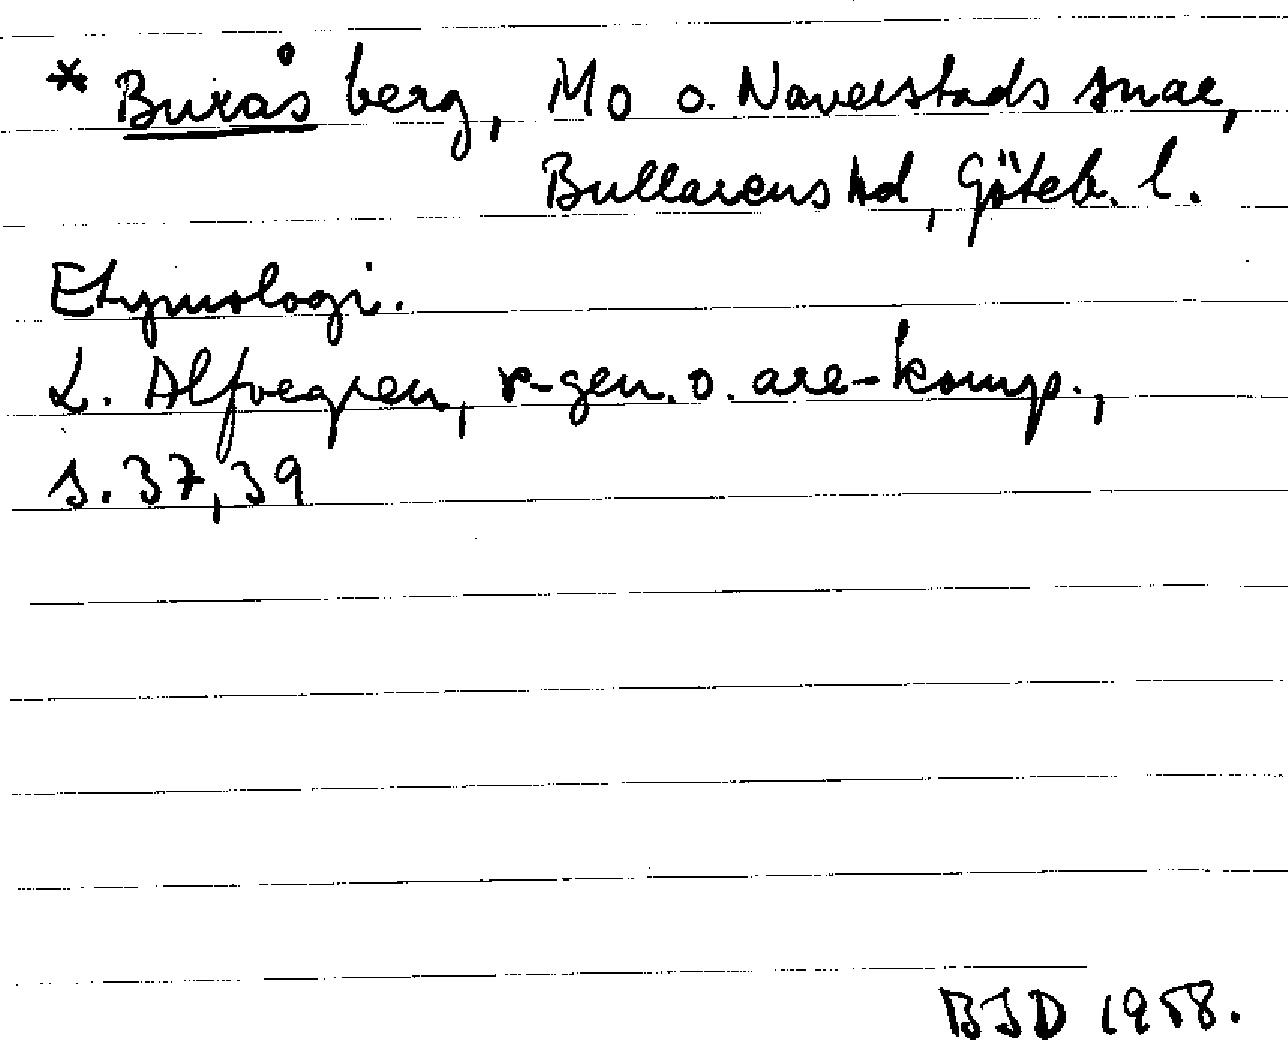 * Buråsberg, Mo o. Naverstads snar,
Bullarens hd, Göteb. l.
Etymologi.
L. Alfvegren, r-gen. o. are-komp.,
s. 37, 39
BJD 1958.